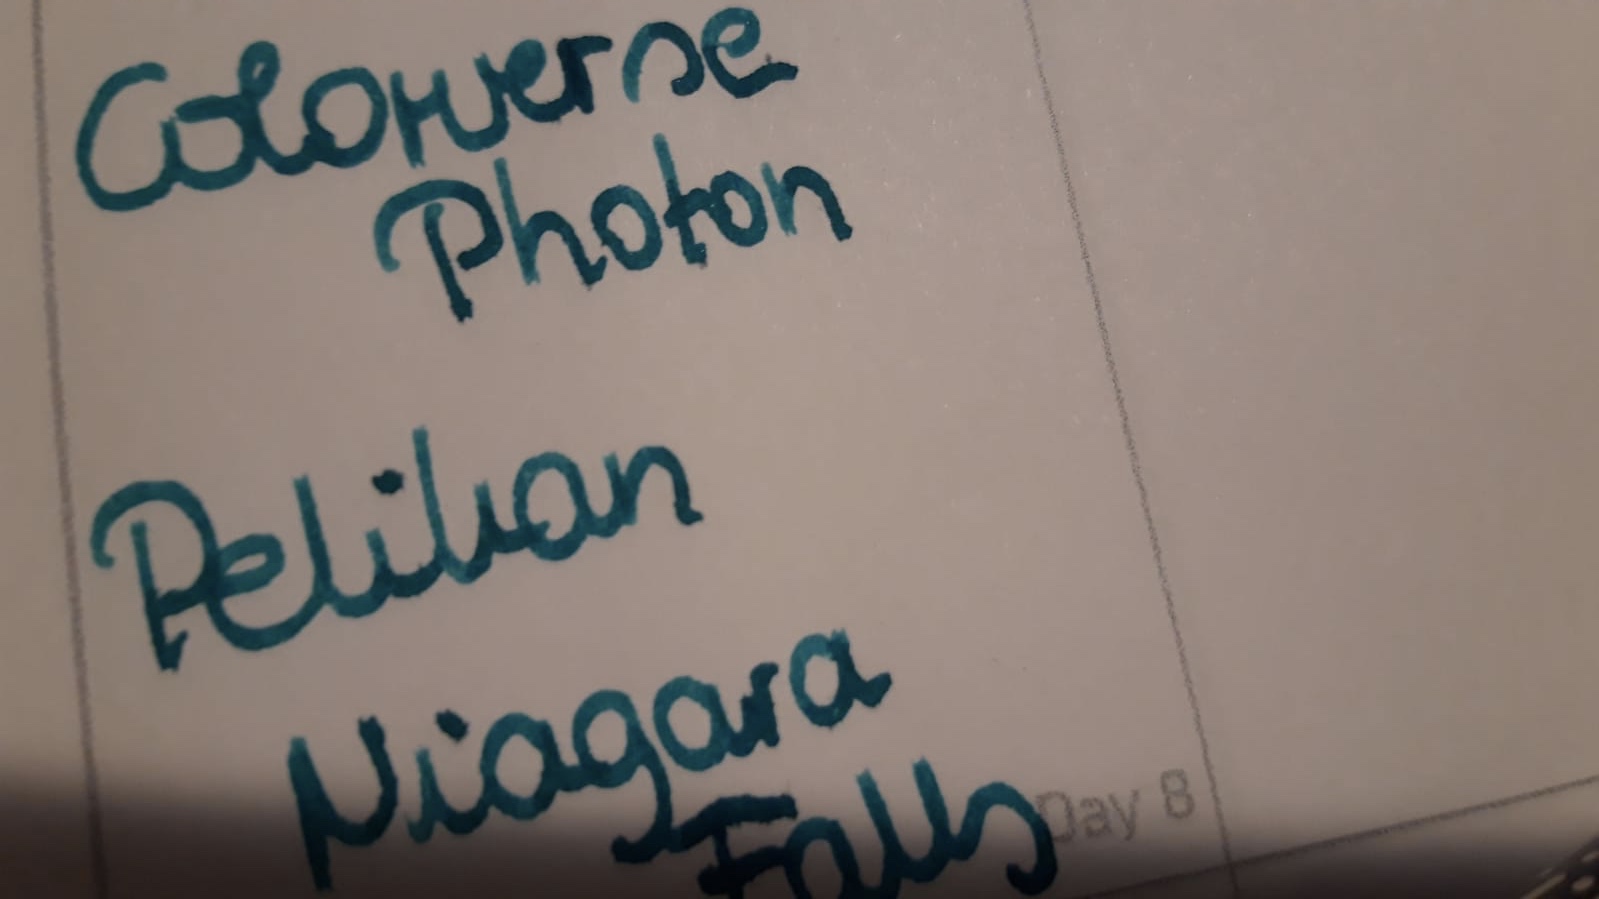 Colorverse
Photon
Pelikan
Niagara
Falls
Day 8